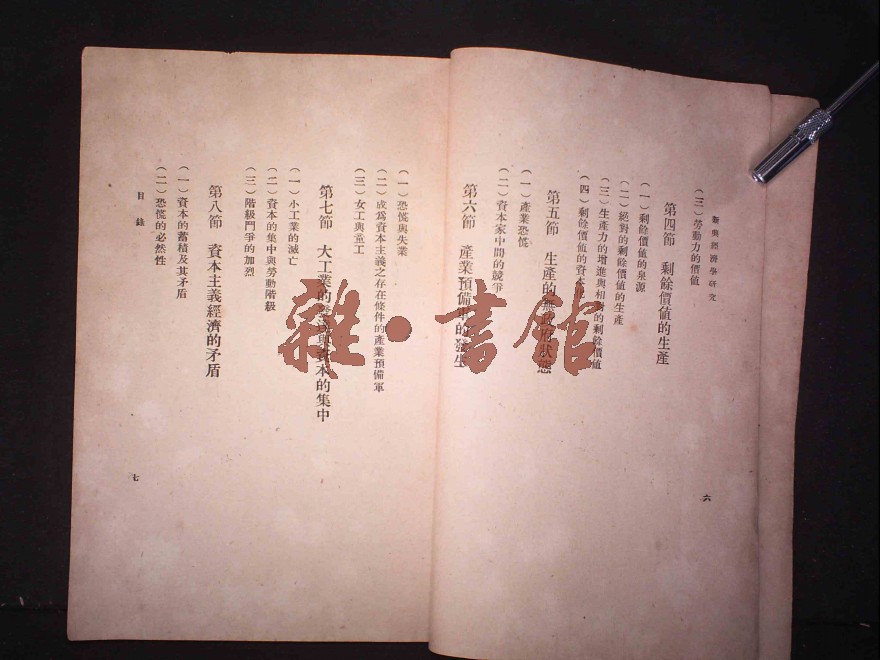 新興經濟學研究
(三)勞動力的價值
第四節 剩餘價值的生產
(一)剩餘價值的泉源
(二)絕對的剩餘價值的生產
(三)生產力的增進與相對的剩餘價值
(四)剩餘價值的資本化
第五節 生產的無政府狀態
(一)產業恐慌
(二)資本家中間的競爭
第六節 產業預備軍的發生
六
(一)恐慌與失業
(二)成爲資本主義之存在條件的產業預備軍
(三)女工與童工
第七節 大工業的發達與資本的集中
(一)小工業的滅亡
(二)資本的集中與勞動階級
(三)階級鬥爭的加烈
第八節 資本主義經濟的矛盾
(一)資本的蓄積及其矛盾
(二)恐慌的必然性
目錄
七
雜·書館